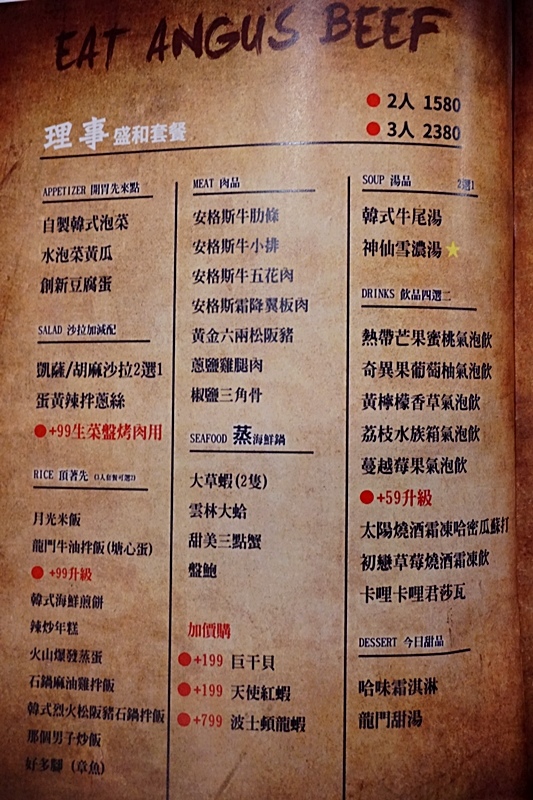 EAT ANGUS BEEF
● 2人 1580
● 3人 2380
理事 盛和套餐
APPETIZER 開胃先來點
自製韓式泡菜
水泡菜黃瓜
創新豆腐蛋
SALAD 沙拉加減配
凱薩/胡麻沙拉2選1
蛋黃辣拌蔥絲
●+99生菜盤烤肉用
RICE 頂著先 (3人套餐可選2)
月光米飯
龍門牛油拌飯(塘心蛋)
● +99升級
韓式海鮮煎餅
辣炒年糕
火山爆發蒸蛋
石鍋麻油雞拌飯
韓式烈火松阪豬石鍋拌飯
那個男子炒飯
好多腳 (章魚)
MEAT 肉品
安格斯牛肋條
安格斯牛小排
安格斯牛五花肉
安格斯霜降翼板肉
黃金六兩松阪豬
蔥鹽雞腿肉
椒鹽三角骨
SEAFOOD 蒸海鮮鍋
大草蝦(2隻)
雲林大蛤
甜美三點蟹
盤鮑
加價購
●+199 巨干貝
●+199 天使紅蝦
●+799 波士頓龍蝦
SOUP 湯品 2選1
韓式牛尾湯
神仙雪濃湯★
DRINKS 飲品四選二
熱帶芒果蜜桃氣泡飲
奇異果葡萄柚氣泡飲
黃檸檬香草氣泡飲
荔枝水族箱氣泡飲
蔓越莓果氣泡飲
●+59升級
太陽燒酒霜凍哈密瓜蘇打
初戀草莓燒酒霜凍飲
卡哩卡哩君莎瓦
DESSERT 今日甜品
哈味霜淇淋
龍門甜湯